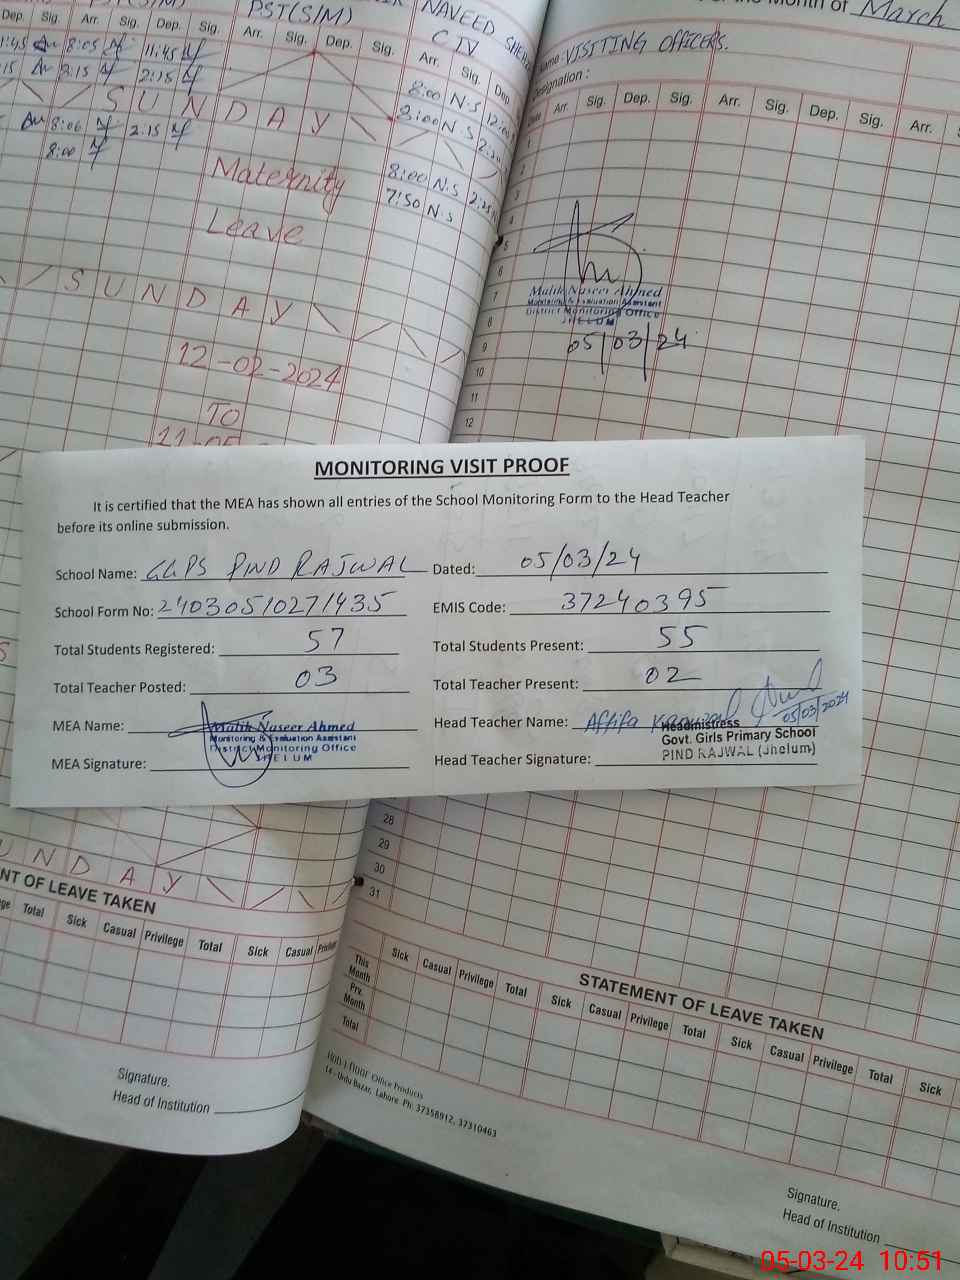 PST(SIM)
NAVEED
CTV
Dep. Sig. Arr. Sig. Dep. Sig. Arr. Sig. Dep. Sig. Arr. Sig. Dep.
8:05 11:45
8:15 2:15
8:00 N.S
8:00 N.S
SUNDAY
8:06 2:15
8:00
8:00 N.S
7:50 N.S
Maternity
Leave
SUNDAY
12-02-2024
TO
the Month of March
Name: VISITING OFFICERS.
Designation:
Date Arr. Sig. Dep. Sig. Arr. Sig. Dep. Sig. Arr.
1
2
3
4
5
6
7
8
9
10
11
12
Malik Naseer Ahmed
Monitoring & Evaluation Assistant
District Monitoring Office
JHELUM
05/03/24
MONITORING VISIT PROOF
It is certified that the MEA has shown all entries of the School Monitoring Form to the Head Teacher
before its online submission.
School Name: GGPS PIND RAJWAL Dated: 05/03/24
School Form No: 24030510271435 EMIS Code: 37240395
Total Students Registered: 57 Total Students Present: 55
Total Teacher Posted: 03 Total Teacher Present: 02
MEA Name: Malik Naseer Ahmed Head Teacher Name: Affifa
Monitoring & Evaluation Assistant
District Monitoring Office
JHELUM
05/03/2024
Headmistress
Govt. Girls Primary School
PIND RAJWAL (Jhelum)
MEA Signature: Head Teacher Signature:
28
29
30
31
UNDAY
NT OF LEAVE TAKEN
Total Sick Casual Privilege Total Sick Casual Privilege
Signature.
Head of Institution
STATEMENT OF LEAVE TAKEN
Sick Casual Privilege Total Sick Casual Privilege Total Sick Casual Privilege Total Sick
This Month
Prv. Month
Total
Office Products
14 - Urdu Bazar, Lahore. Ph: 37358912, 37310463
Signature.
Head of Institution
05-03-24 10:51